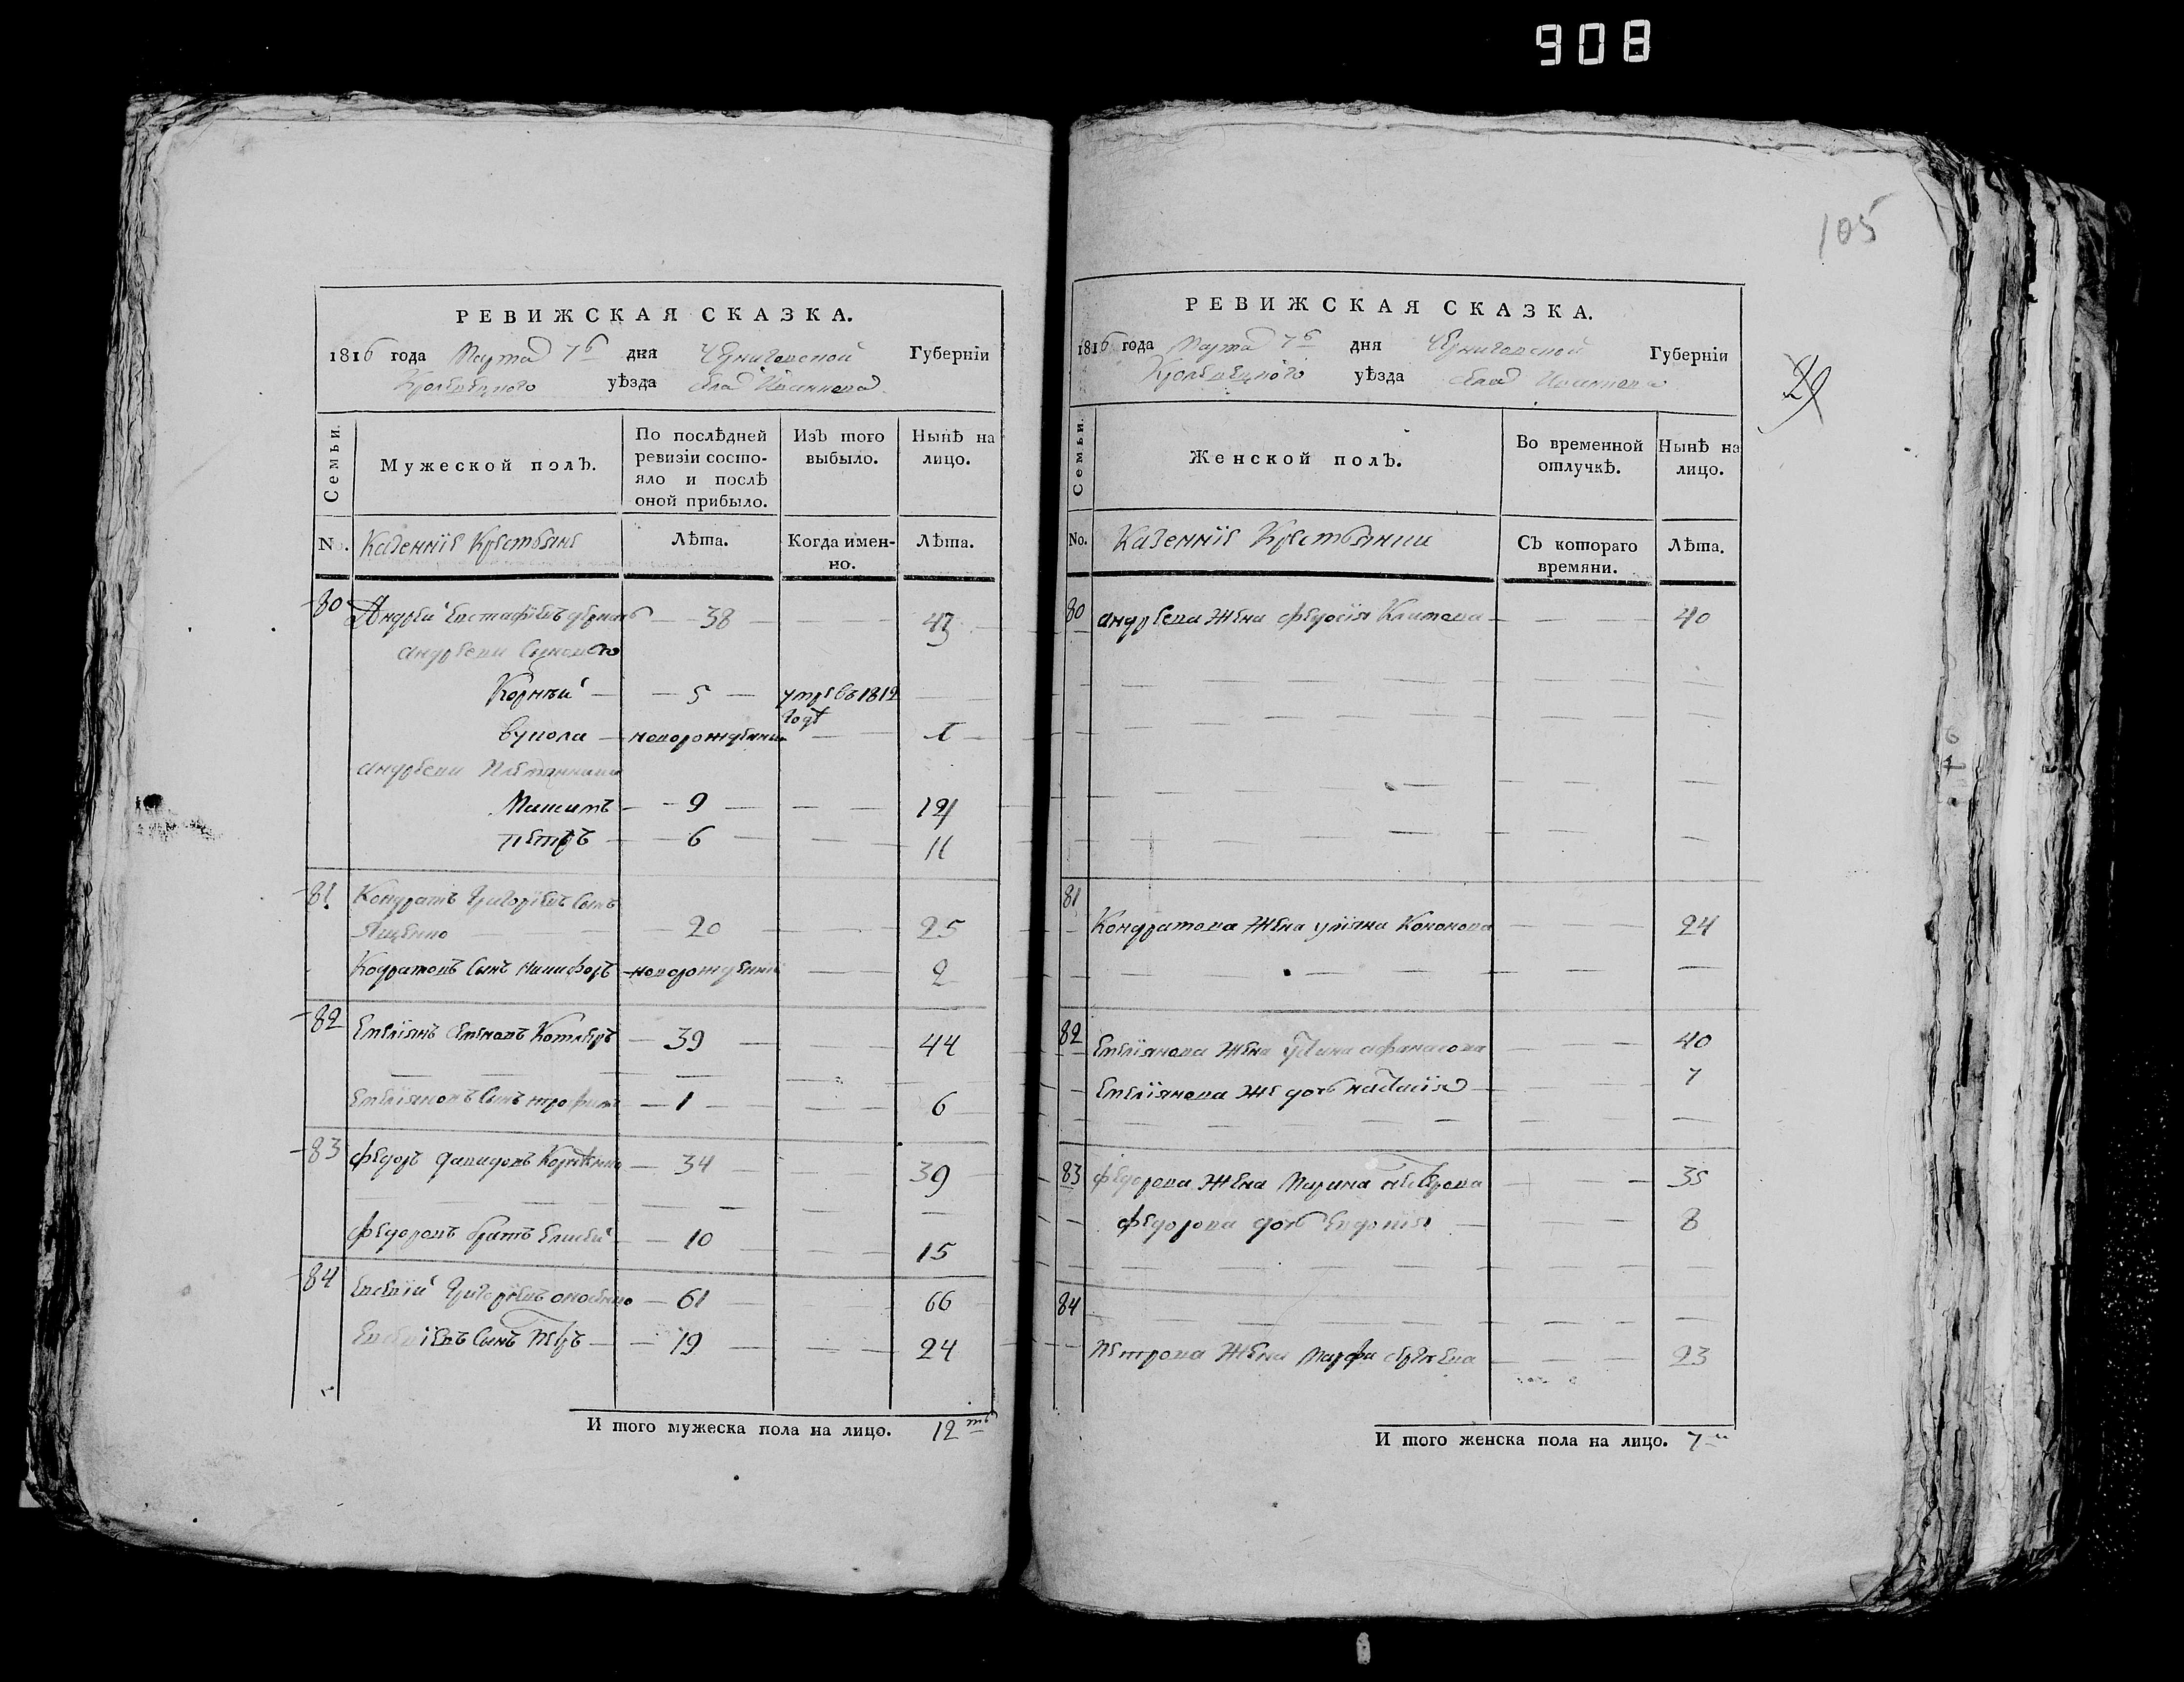 908
105
РЕВИЖСКАЯ СКАЗКА.
1816 года Марта 7б дня Черниговской Губерніи
Кролевецкого уѣзда села Иванкова
Семьи.
Мужеской полъ.
По послѣдней ревизіи состо-
яло и послѣ
оной прибыло.
Изъ того
выбыло.
Нынѣ на
лицо.
No. Казенніе Крестьяне
Лѣта.
Когда имен-
но.
Лѣта.
80 Андрей Евстафіевъ 38 43
андреевы сыновья
Корнѣй 5 умре въ 1812
годѣ
Вукола новорожденный 1
андреевы племянники
Максимъ 9 14
петръ 6 11
81 Кондратъ Григоріевъ сынъ
Ященко 20 25
Кодратовъ сынъ никифоръ новорожденный 2
82 Емеліянъ Семеновъ Котляръ 39 44
Емеліяновъ сынъ трофимъ 1 6
83 федоръ давидовъ 34 39
федоровъ братъ Елисей 10 15
84 Евсевій Григоріевъ 61 66
Евсевіевъ сынъ Петръ 19 24
И того мужеска пола на лицо. 12ть
РЕВИЖСКАЯ СКАЗКА.
1816 года Марта 7б дня Черниговской Губерніи
Кролевецкого уѣзда села Иванкова
Семьи.
Женской полъ.
Во временной
отлучкѣ.
Нынѣ на
лицо.
No. Казенніе Крестьянки
Съ котораго
времяни.
Лѣта.
80 андреева жена федосія Климова 40
81
Кондратова жена уліяна Кононова 24
82 Емеліянова жена устина афанасова 40
Емеліянова же дочь настасія 7
83 федорова жена Марина несторова 35
федорова дочь Евдокія 8
84
Петрова жена марфа 23
И того женска пола на лицо. 7м